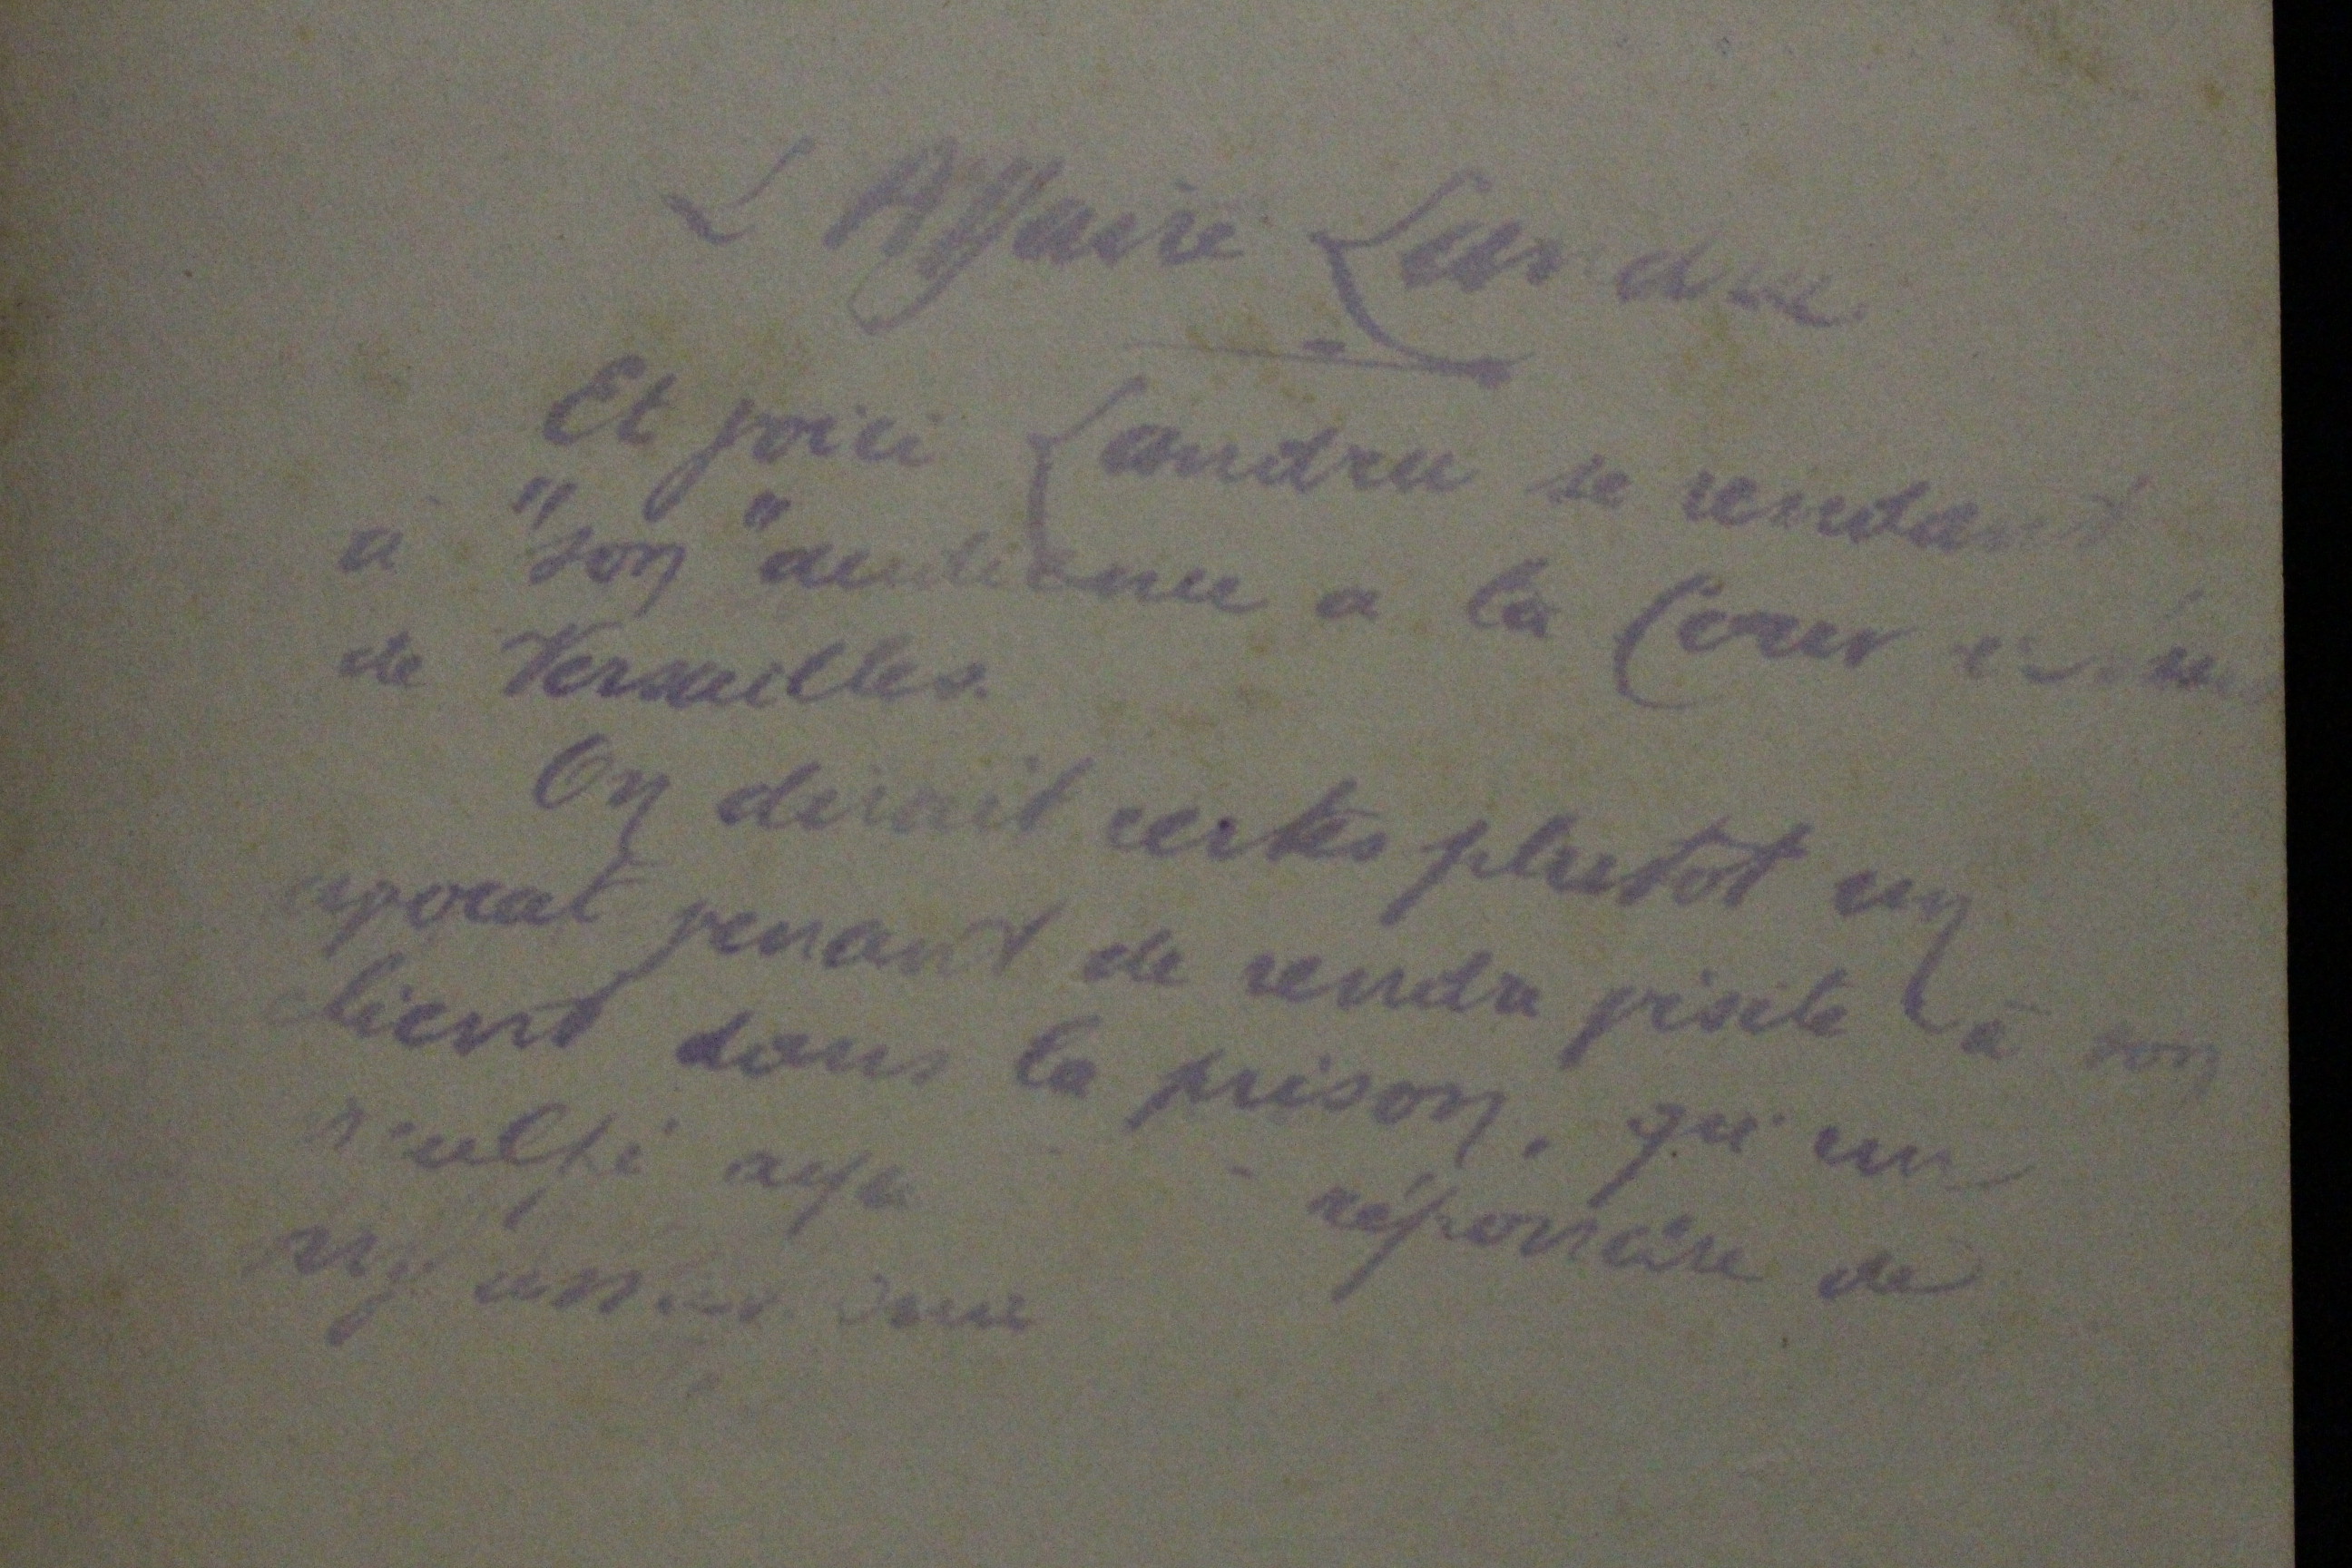 L'Affaire Landru
Et voici Landru se rendant
à "son" audience a la Cour
de Versailles.
On dirait certes plutot un
avocat venant de rendre visite à son
client dans la prison, qu'un
inculpé répondre de